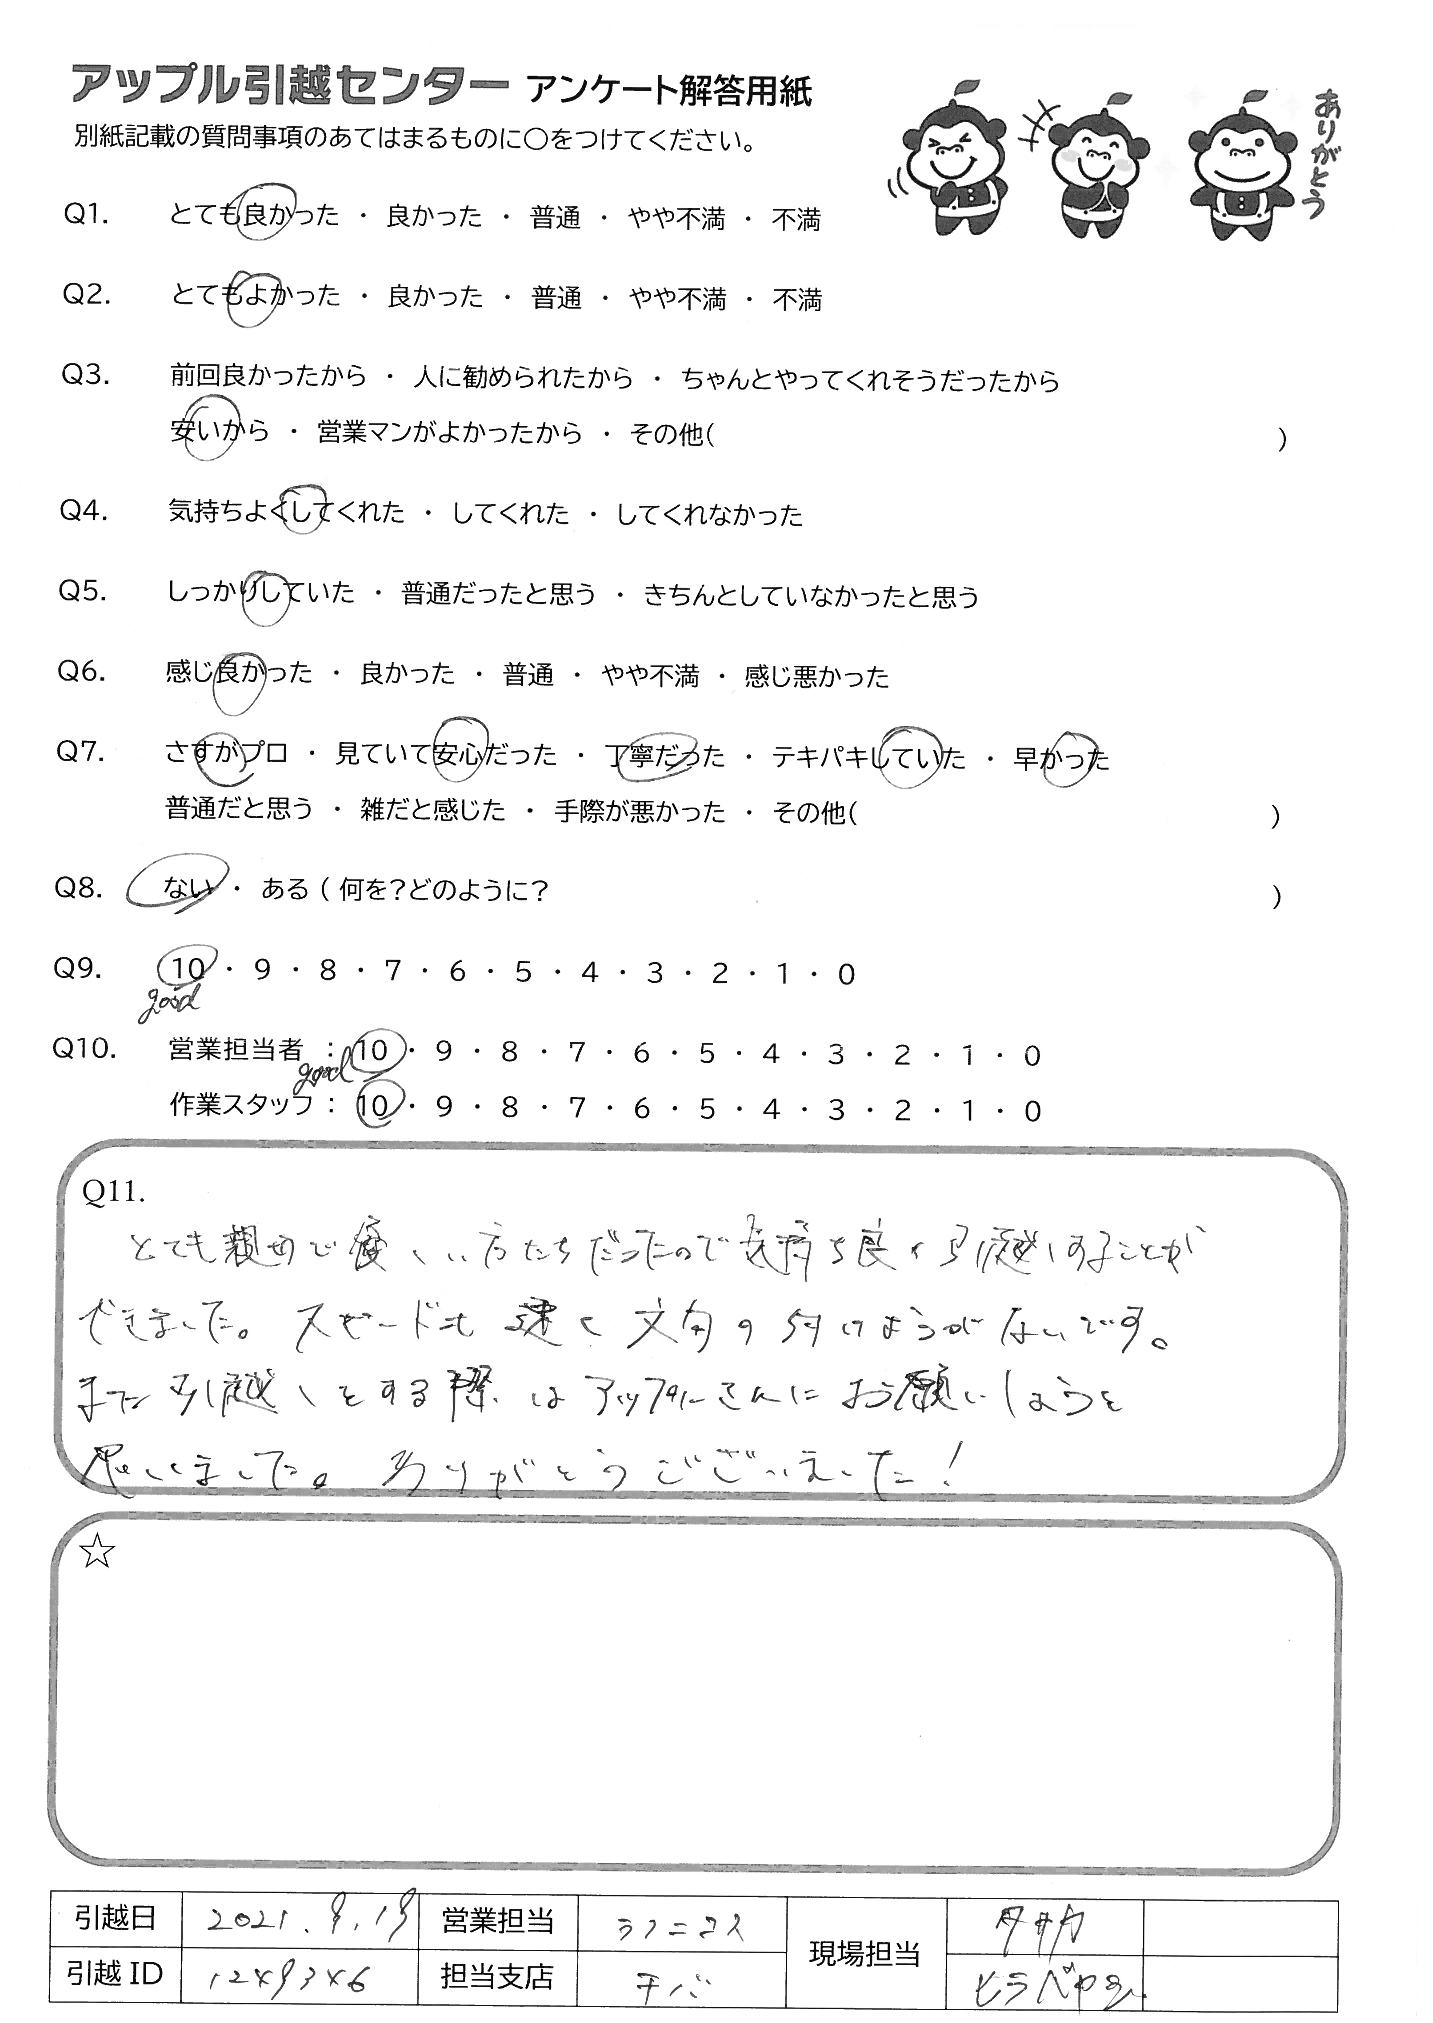 アップル引越センター アンケート解答用紙
別紙記載の質問事項のあてはまるものに○をつけてください。
ありがとう
Q1. とても良かった ・ 良かった ・ 普通 ・ やや不満 ・ 不満
Q2. とてもよかった ・ 良かった ・ 普通 ・ やや不満 ・ 不満
Q3. 前回良かったから ・ 人に勧められたから ・ ちゃんとやってくれそうだったから
安いから ・ 営業マンがよかったから ・ その他( )
Q4. 気持ちよくしてくれた ・ してくれた ・ してくれなかった
Q5. しっかりしていた ・ 普通だったと思う ・ きちんとしていなかったと思う
Q6. 感じ良かった ・ 良かった ・ 普通 ・ やや不満 ・ 感じ悪かった
Q7. さすがプロ ・ 見ていて安心だった ・ 丁寧だった ・ テキパキしていた ・ 早かった
普通だと思う ・ 雑だと感じた ・ 手際が悪かった ・ その他( )
Q8. ない ・ ある ( 何を?どのように? )
Q9. 10 ・ 9 ・ 8 ・ 7 ・ 6 ・ 5 ・ 4 ・ 3 ・ 2 ・ 1 ・ 0
good
Q10. 営業担当者 : 10 ・ 9 ・ 8 ・ 7 ・ 6 ・ 5 ・ 4 ・ 3 ・ 2 ・ 1 ・ 0
good
作業スタッフ : 10 ・ 9 ・ 8 ・ 7 ・ 6 ・ 5 ・ 4 ・ 3 ・ 2 ・ 1 ・ 0
Q11.
とても親切で優しい方たちだったので気持ち良く引越しすることが
できました。スピードも速く文句の付けようがないです。
また引越しをする際はアップルさんにお願いしようと
思いました。ありがとうございました!
☆
引越日 2021. 9. 19 営業担当 現場担当 タサカ
引越ID 担当支店 チバ